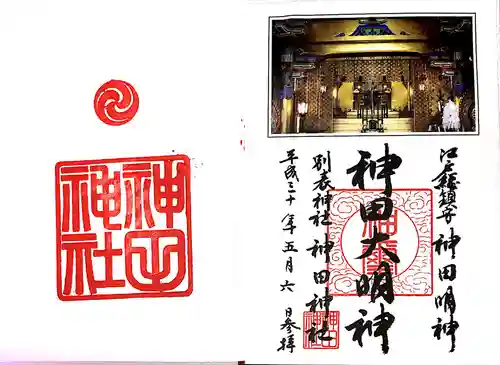 江戸総鎮守 神田明神
神田大明神
別表神社 神田神社
平成三十年五月六日参拝
神田神社
神田神社